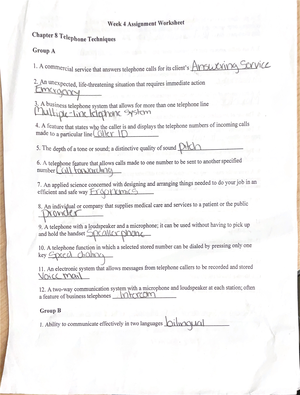 Week 4 Assignment Worksheet
Chapter 8 Telephone Techniques
Group A
1. A commercial service that answers telephone calls for its client's Answering Service
2. An unexpected, life-threatening situation that requires immediate action
Emergency
3. A business telephone system that allows for more than one telephone line
Multiple-line telephone system
4. A feature that states who the caller is and displays the telephone numbers of incoming calls
made to a particular line Caller ID
5. The depth of a tone or sound; a distinctive quality of sound pitch
6. A telephone feature that allows calls made to one number to be sent to another specified
number Call forwarding
7. An applied science concerned with designing and arranging things needed to do your job in an
efficient and safe way Ergonomics
8. An individual or company that supplies medical care and services to a patient or the public
provider
9. A telephone with a loudspeaker and a microphone; it can be used without having to pick up
and hold the handset Speakerphone
10. A telephone function in which a selected stored number can be dialed by pressing only one
key Speed dialing
11. An electronic system that allows messages from telephone callers to be recorded and stored
Voice mail
12. A two-way communication system with a microphone and loudspeaker at each station; often
a feature of business telephones Intercom
Group B
1. Ability to communicate effectively in two languages bilingual